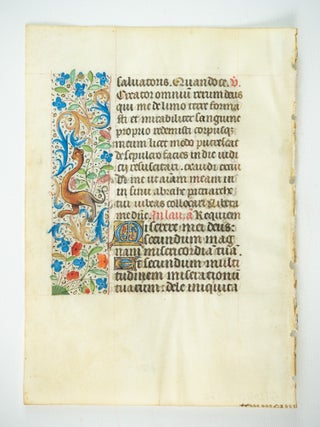 salvatoris. Quando ce. V.
Creator omniū rerum deus
qui me de limo terre forma
sti et mirabiliter sanguine
proprio redemisti corpusqꝫ
meum licet modo putrescat
de sepulcro facies in die iudi
cij resuscitari exaudi exaudi
me ut aīam meam in
sinu abrahe patriarche
tui iubeas collocari
In lau. a. Requiem
Miserere mei deus:
secundum mag
nam misericordiā tuā.
Et secundum multi
tudinem miserationū
tuarum: dele iniquita